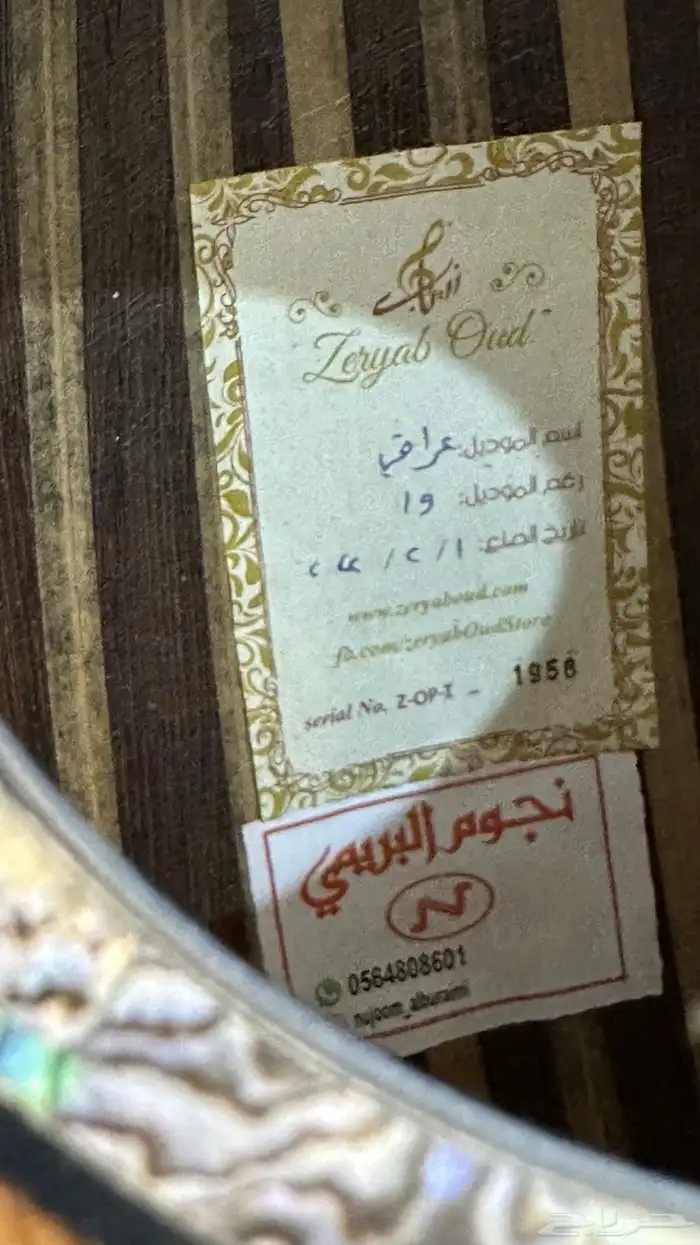 زرياب
Zeryab Oud
اسم الموديل: عراقي
رقم الموديل: ١٩
تاريخ الصنع: ١ / ٢ /
www.zeryaboud.com
fb.com/zeryabOudStore
serial No. Z-OP-I - 1958
نجوم البريمي
N
0564808601
nujoom_alburaimi
حراج